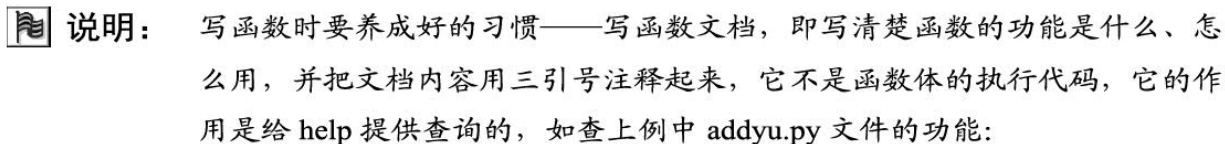 说明： 写函数时要养成好的习惯——写函数文档，即写清楚函数的功能是什么、怎
么用，并把文档内容用三引号注释起来，它不是函数体的执行代码，它的作
用是给 help 提供查询的，如查上例中 addyu.py 文件的功能：